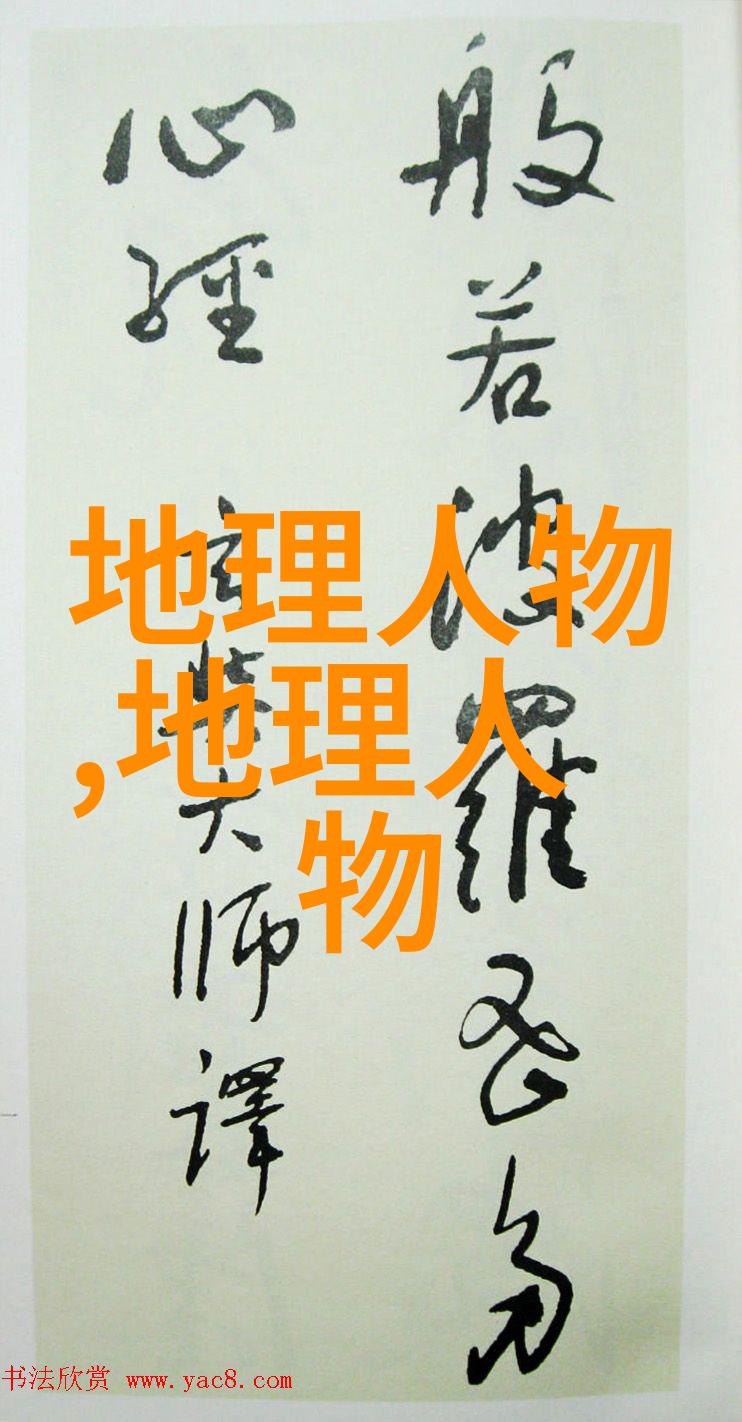 般若波羅蜜多
心經 玄奘大師譯
地理人物
,地理人
物
书法欣赏 www.yac8.com